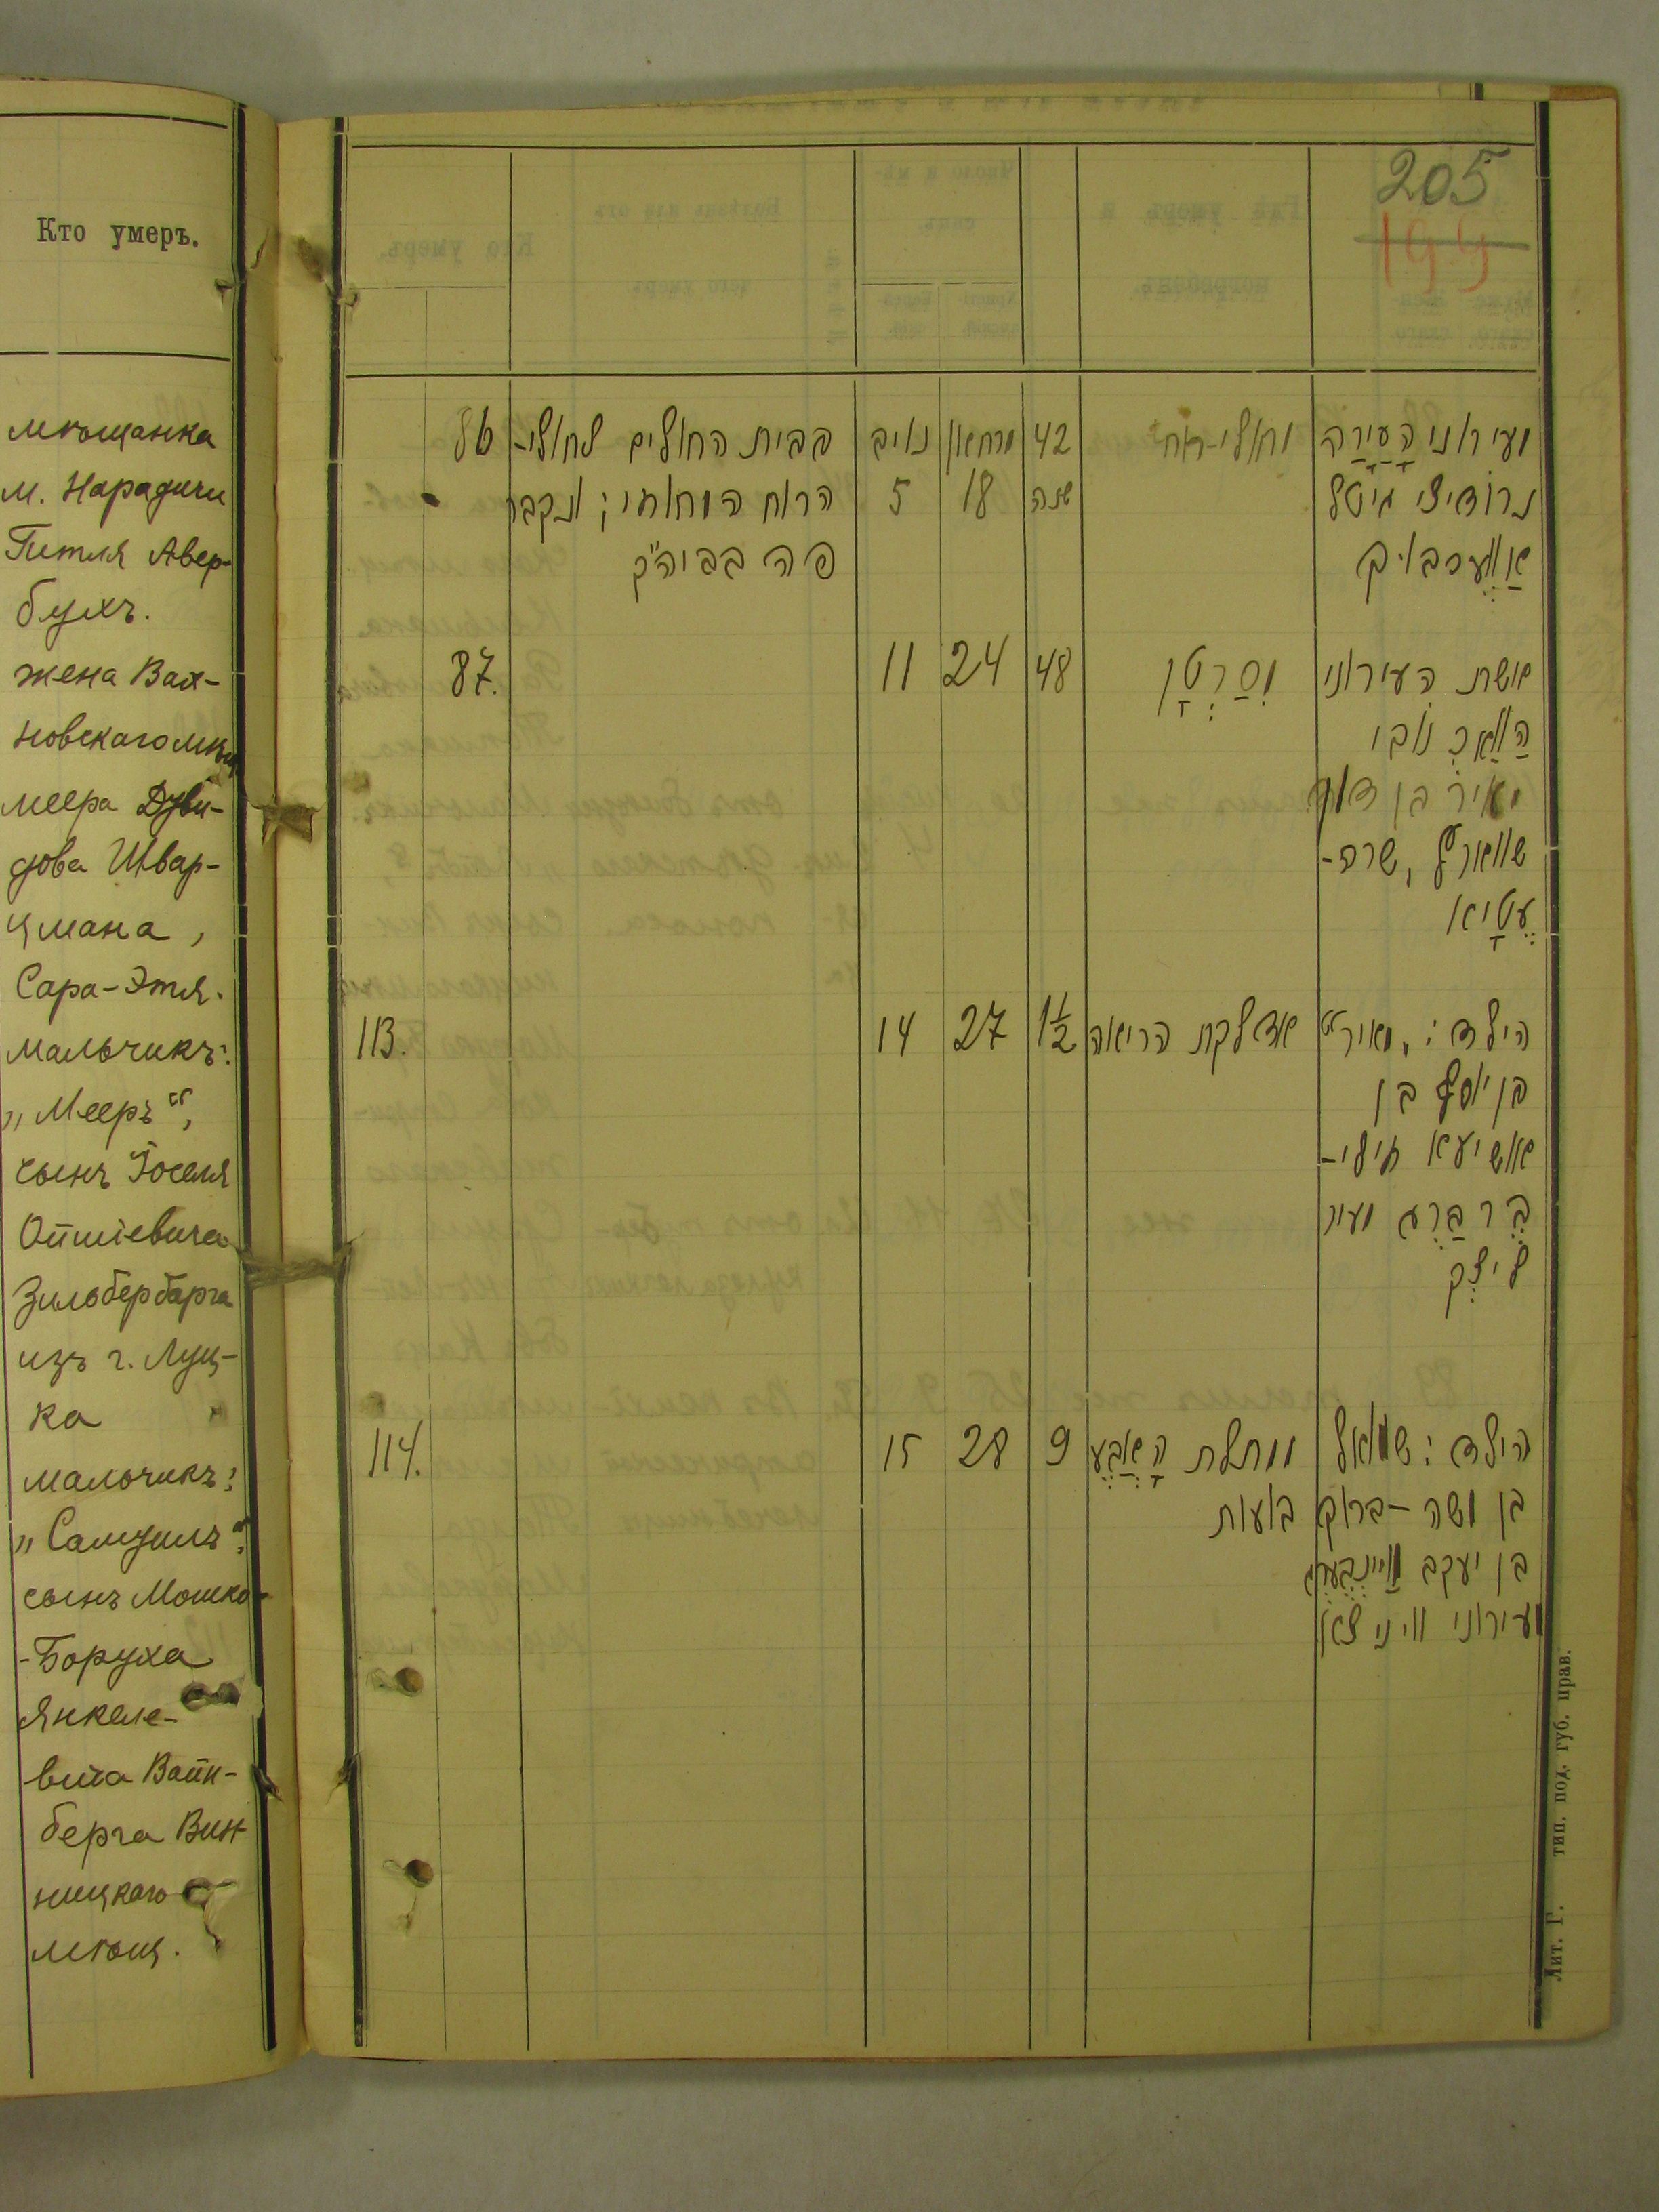 Кто умеръ.
мѣщанка
м. Народичи
Гитля Авер-
бухъ.
жена Вах-
новскаго мѣщ
Меера Дуви-
дова Швар-
цмана,
Сара-Этя.
мальчикъ:
„Мееръ“,
сынъ Іоселя
Ойшіевича
Зильбербарга
изъ г. Луц-
ка
мальчикъ:
„Самуилъ“,
сынъ Мошко-
-Боруха
Янкеле-
вича Вайн-
берга Вин
ницкаго
мѣщ.
205
199
86 בבית החולים לחולי- נויב מרחשון 42 מחולי-רוח מעירוני העירה
הרוח המחוזי; ונקבר 5 18 שנה נרודיצי גיטל
פה בביה"ק אַווערבוך
87. 11 24 48 מסרטן אשת העירוני
הוואַכנובי
מאיר בן דוד
שווארץ, שרה-
עטיא
113. 14 27 1½ מדלקת הריאה הילד: „מאיר“
בן יוסף בן
אושיעא זילי-
בערבערג מעיר
לוצק
114. 15 28 9 ממחלת האבע הילד: שמואל
בועות בן משה-ברוך
בן יעקב וויינבערג
מעירוני וויניצא
Лит. Г. тип. под. губ. прав.